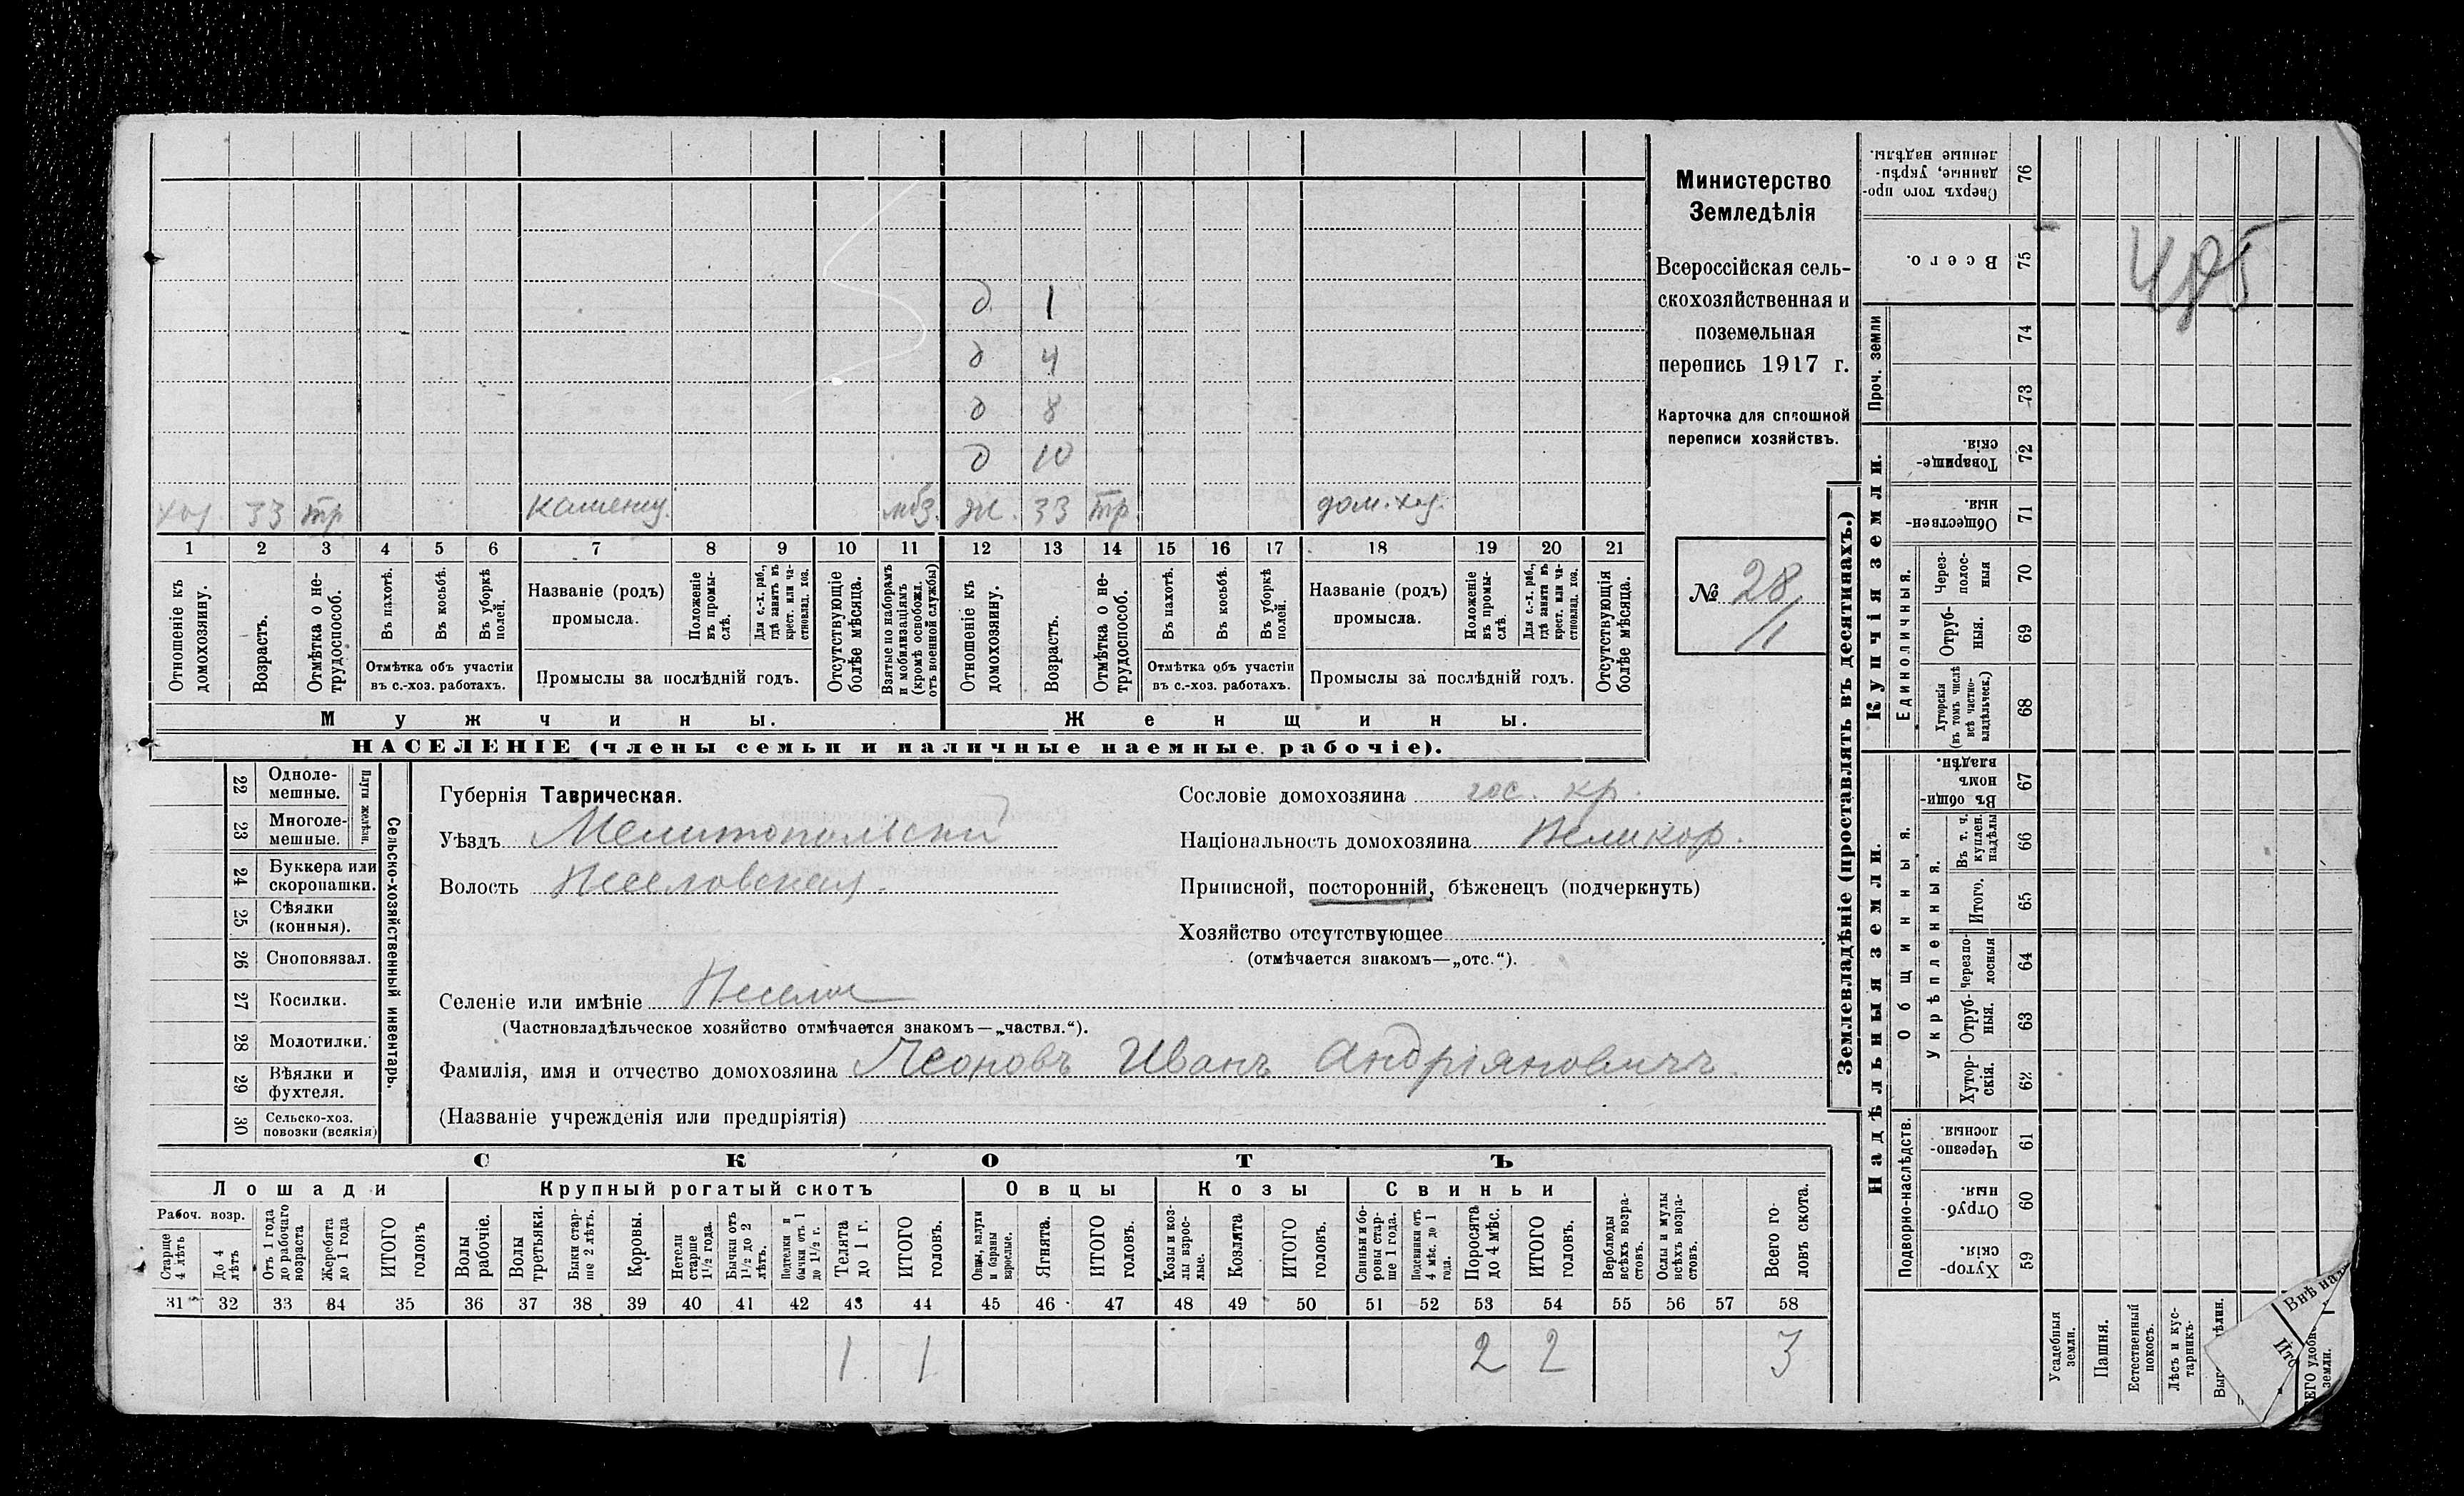 д 1
д 4
д 8
д 10
хоз. 33 тр каменщ. мбз. ж. 33 тр дом. хоз.
1 2 3 4 5 6 7 8 9 10 11 12 13 14 15 16 17 18 19 20 21
Отношеніе къ домохозяину.
Возрастъ.
Отмѣтка о не-
трудоспособ.
Въ пахотѣ.
Въ косьбѣ.
Въ уборкѣ
полей.
Отмѣтка объ участіи
въ с.-хоз. работахъ.
Названіе (родъ)
промысла.
Положеніе
въ промы-
слѣ.
Для с.-х. раб.,
гдѣ занятъ въ
крест. или ча-
стновлад. хоз.
Промыслы за послѣдній годъ.
Отсутствующіе
болѣе мѣсяца.
Взятые по наборамъ
и мобилизаціямъ
(кромѣ освобожд.
отъ военной службы)
Отношеніе къ
домохозяину.
Возрастъ.
Отмѣтка о не-
трудоспособ.
Въ пахотѣ.
Въ косьбѣ.
Въ уборкѣ
полей.
Отмѣтка объ участіи
въ с.-хоз. работахъ.
Названіе (родъ)
промысла.
Положеніе
въ промы-
слѣ.
Для с.-х. раб.,
гдѣ занята въ
крест. или ча-
стновлад. хоз.
Промыслы за послѣдній годъ.
Отсутствующія
болѣе мѣсяца.
Мужчины. Женщины.
НАСЕЛЕНІЕ (члены семьи и наличные наемные рабочіе).
Министерство
Земледѣлія
Всероссійская сель-
скохозяйственная и
поземельная
перепись 1917 г.
Карточка для сплошной
переписи хозяйствъ.
№ 28
/1
22 Одноле-
мешные.
23 Многоле-
мешные.
Плуги желѣзн.
24 Буккера или
скоропашки.
25 Сѣялки
(конныя).
26 Сноповязал.
27 Косилки.
28 Молотилки.
29 Вѣялки и
фухтеля.
30 Сельско-хоз.
повозки (всякія)
Сельско-хозяйственный инвентарь.
Губернія Таврическая.
Уѣздъ Мелитопольскій
Волость Веселовская.
Сословіе домохозяина гос. кр.
Національность домохозяина Великор.
Приписной, посторонній, бѣженецъ (подчеркнуть)
Хозяйство отсутствующее
(отмѣчается знакомъ—„отс.“).
Селеніе или имѣніе Веселое
(Частновладѣльческое хозяйство отмѣчается знакомъ—„частвл.“).
Фамилія, имя и отчество домохозяина Леоновъ Иванъ Андріяновичъ.
(Названіе учрежденія или предпріятія)
СКОТЪ
Лошади Крупный рогатый скотъ Овцы Козы Свиньи
Рабоч. возр.
Старше
4 лѣтъ
До 4
лѣтъ
Отъ 1 года
до рабочаго
возраста
Жеребята
до 1 года
ИТОГО
головъ
Волы
рабочіе.
Волы
третьяки.
Быки стар-
ше 2 лѣтъ.
Коровы.
Нетели
старше
1½ года.
Бычки отъ
1½ до 2
лѣтъ.
Подтелки и
бычки отъ 1
до 1½ г.
Телята
до 1 г.
ИТОГО
головъ.
Овцы, валухи
и бараны
взрослые.
Ягнята.
ИТОГО
головъ.
Козы и коз-
лы взрос-
лые.
Козлята
ИТОГО
головъ.
Свиньи и бо-
ровы стар-
ше 1 года.
Подсвинки отъ
4 мѣс. до 1
года.
Поросята
до 4 мѣс.
ИТОГО
головъ.
Верблюды
всѣхъ возра-
стовъ.
Ослы и мулы
всѣхъ возра-
стовъ.
Всего го-
ловъ скота.
31 32 33 34 35 36 37 38 39 40 41 42 43 44 45 46 47 48 49 50 51 52 53 54 55 56 57 58
1 1 2 2 3
Землевладѣніе (проставлять въ десятинахъ.)
Купчія земли.
Надѣльныя земли.
Сверхъ того про-
данные, укрѣп-
ленные надѣлы.
76
Всего.
75
485
Проч. земли
74
73
Товарище-
скія.
72
Обществен-
ныя.
71
Единоличныя.
Через-
полос-
ныя
70
Отруб-
ныя.
69
Хуторскія
(въ томъ числѣ
всѣ частно-
владѣльческ.)
68
Общинныя.
Въ общи-
номъ
владѣн.
67
Укрѣпленныя.
Въ т. ч.
куплен.
надѣлы
66
Итого.
65
Черезпо-
лосныя
64
Отруб-
ныя.
63
Хутор-
скія.
62
Подворно-наслѣдств.
Черезпо-
лосныя.
61
Отруб-
ныя.
60
Хутор-
скія.
59
Усадебныя
земли.
Пашня.
Естественный
покосъ.
Лѣсъ и кус-
тарникъ.
Внѣ на
Ито
ЕГО удобн
земли.